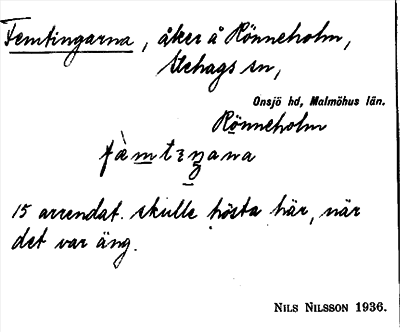 Femtingarna, åker å Rönneholm,
Stehags sn,
Onsjö hd, Malmöhus län.
Rönneholm
fàmtıŋana
15 arrendat. skulle hösta här, när
det var äng.
NILS NILSSON 1936.